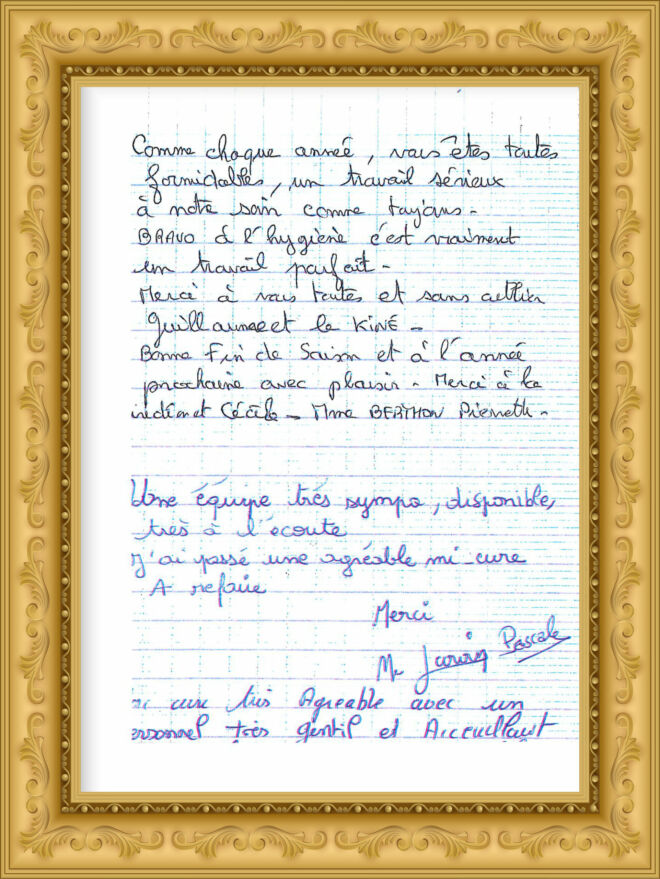 Comme chaque année, vous êtes toutes
formidables, un travail sérieux
à notre soin comme toujours -
BRAVO à l'hygiène c'est vraiment
un travail parfait -
Merci à vous toutes et sans oublier
Guillaume et le KINÉ -
Bonne Fin de Saison et à l'année
prochaine avec plaisir - Merci à la
et Cécile - Mme BERTHON Pierrette -
Une équipe très sympa, disponible,
très à l'écoute
J'ai passé une agréable mi-cure
A refaire
Merci
Pascale
cure très Agréable avec un
ersonnel très gentil et Acceuillant